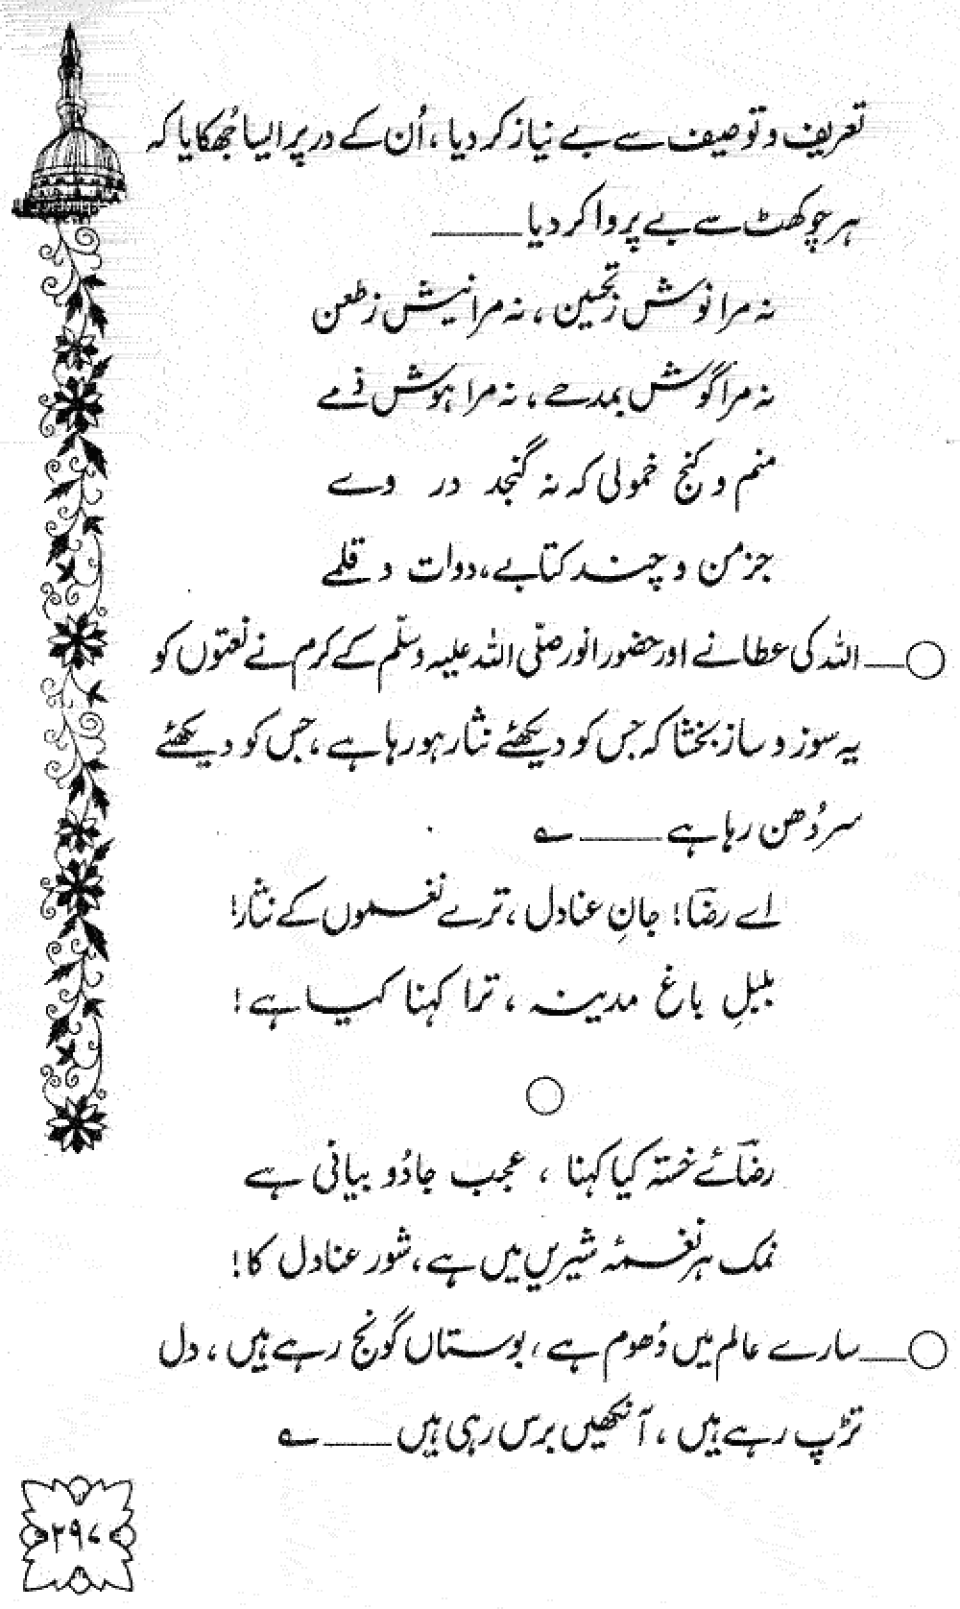 تعریف و توصیف سے بے نیاز کر دیا ، اُن کے در پر ایسا جُھکایا کہ
ہر چوکھٹ سے بے پروا کر دیا ____
نہ مرا نوش ز تحسین ، نہ مرا نیش ز طعن
نہ مرا گوش بمدحے ، نہ مرا ہوش ذمے
منم و کنج خمولی کہ نہ گنجد در وے
جز من و چند کتابے ، دوات و قلمے
○__ اللہ کی عطا نے اور حضور انور صلّی اللہ علیہ وسلّم کے کرم نے نعتوں کو
یہ سوز و ساز بخشا کہ جس کو دیکھئے نثار ہو رہا ہے ، جس کو دیکھئے
سر دُھن رہا ہے ____ ے
اے رضؔا ! جانِ عنادل ، ترے نغموں کے نثار!
بلبلِ باغ مدینہ ، ترا کہنا کیا ہے !
○
رضؔائے خستہ کیا کہنا ، عجب جادُو بیانی ہے
نمک ہر نغمۂ شیریں میں ہے ، شور عنادل کا !
○__ سارے عالم میں دُھوم ہے ، بوستاں گونج رہے ہیں ، دل
تڑپ رہے ہیں ، آنکھیں برس رہی ہیں ____ ے
۲۹۷